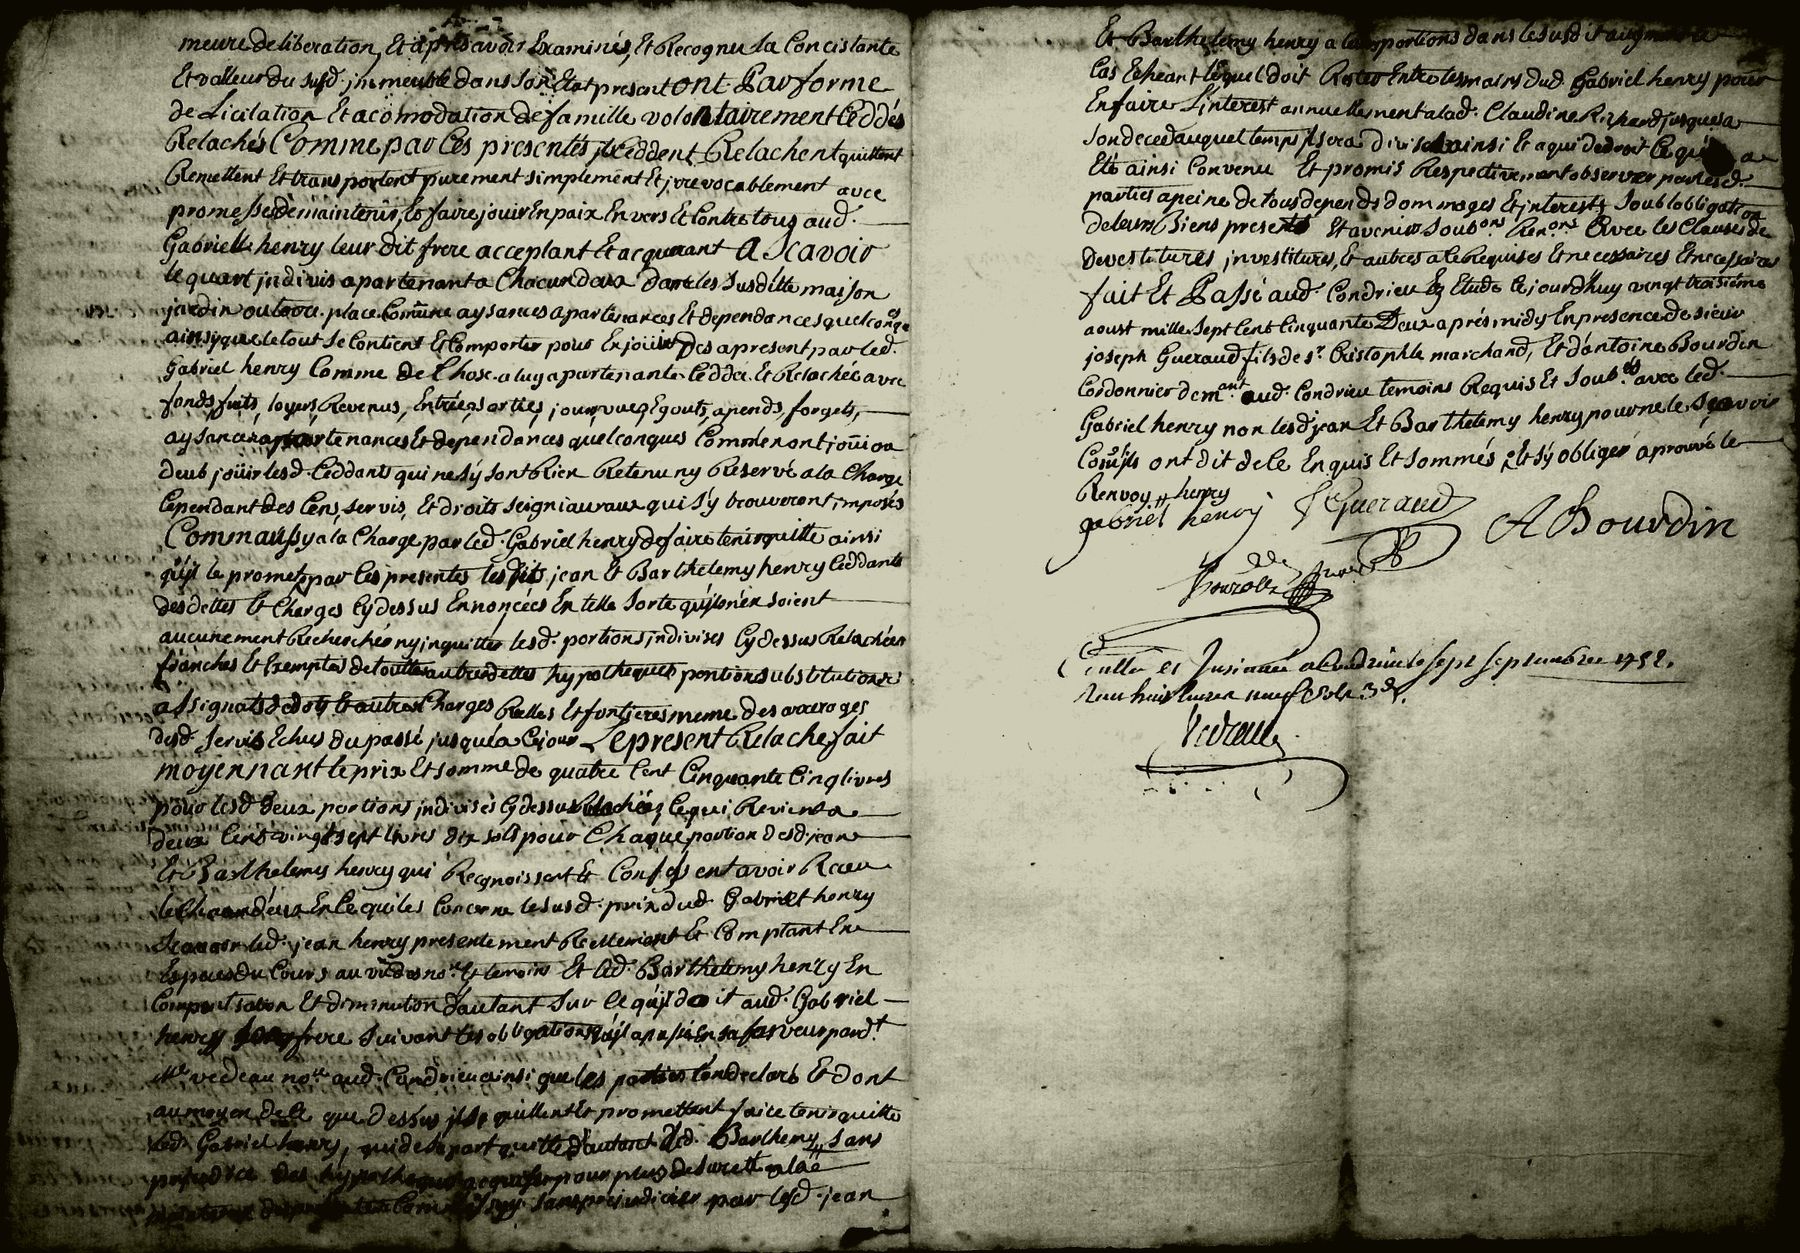 meure deliberation, Et apres avoir Examinés, Et Recognu la Concistante
Et valleur du susd. jmmeuble dans son Etat present ont Par forme
de Licitation Et acomodation de famille volontairement Ceddés
Relachés Comme par Ces presentes jls Ceddent Relachent quittent
Remettent Et transportent purement simplement Et jrrevocablement avec
promesse de maintenir, Et faire jouir En paix Envers Et Contre tous aud.
Gabrielle henry leur dit frere acceptant Et acquerant a Scavoir
le quart jndivis apartenant a Chacun deux dans les Susditte maison
jardin outove place Comune aysances apartenances Et dependances quelconques
ainsy que le tout se Contient Et Comporte pour En jouir Des a present par led.
Gabriel henry Comme de Chose a luy apartenante Ceddée Et Relachée avec
fonds, fruits, loyers Revenus, Entrées sorties, jours vues, Egouts, apends, forgets,
aysances apartenances Et dependances quelconques Comme en ont joüi ou
deub joüir lesd. Ceddants qui ne sy sont Rien Retenu ny Reservé a la Charge
Cependant des Cens, servis, Et droits seigniauraux qui s'y trouveront jmposés
Comm'aussy a la Charge par led. Gabriel henry de faire tenir quitte ainsi
qu'jl le promet par Ces presentes lesdits jean Et Barthelemy henry Ceddants
des dettes Et Charges Cy dessus Ennoncées En telle sorte qu'jls n'en soient
aucunement Recherchés ny jnquittes lesd. portions jndivises Cy dessus Relachées
franches Et Exemptes de toutte autre dettes hypotheques pentions substitutions
assignats de dots Et autres Charges Relles Et fontieres meme des arrerages
desd. servis Echus du passé jusqu'a Ce jour Le present Relache fait
moyennant le prix Et somme de quatre Cent Cinquante Cinq livres
pour lesd. deux portions jndivises Cy dessus Relachées, Ce qui Revient a
deux Cent vingt sept livres dix sols pour Chaque portion desd. jean
Et Barthelemy henry qui Recgnoissent Et Confessent avoir Receu
le Chacun d'eux En Ce qui les Concerne le susd. prix dud. Gabriel henry
Scavoir led. jean henry presentement Reellement Et Comptant En
Especes du Cours au veu des no.res Et temoins Et led. Barthelemy henry En
Compensation Et diminution dautant sur Ce qu'jl doit aud. Gabriel
henry son frere suivant les obligations qu'jl a passé En sa faveur pard.t
Me vedeau no.re aud. Condrieu ainsi que les parties l'ont declaré Et dont
au moyen de Ce que Dessus jls quittent Et promettent faire tenir quitte
led. Gabriel henry, qui de sa part quitte d'autant led. Barthemy, sans
prejudice des hypotheques acquises pour plus de sureté
Comm'aussy sans prejudicier par lesd. jean
Et Barthelemy henry a leurs portions dans le susdit augment
Cas Echeant lequel doit Rester Entre les mains dud. Gabriel henry pour
En faire L'interest annuellement a lad. Claudine Richard jusqu'a
son deced auquel temps jl sera divisé ainsi Et a qui de droit Ce qui a
Eté ainsi Convenu Et promis Respectivement observer par lesd.
parties a peine de tous depends dommages Et jnterests, Soub l'obligation
de leurs Biens presents Et avenir Soub.ons Ren.ons Avec les Clauses de
devestitures jnvestitures, Et autres a le Requises Et necessaires Et necessaires
fait Et Passé aud. Condrieu Ez Etude Ce jourdhuy vingt troisieme
aoust mille sept Cent Cinquante Deux aprés midy En presence de sieur
joseph Gueraud fils de s.r Cristophle marchand, Et d'antoine Bourdin
Cordonnier dem.ant aud. Condrieu temoins Requis Et soub.és avec led.
Gabriel henry non lesd. jean Et Barthelemy henry pour ne le sçavoir
Com'jls ont dit de Ce Enquis Et sommés, Et s'y obliger aprouvé le
Renvoy henry
gabriel henry JGueraud A Bourdin
Collé Et Jnsinué a Condrieu le sept septembre 1752.
Reçu huit livres neuf sols 3d.
Vedeau